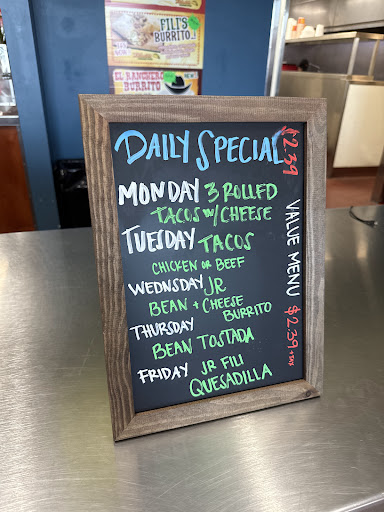 FILI'S
BURRITO
EL RANCHERO
BURRITO
DAILY SPECIAL
$2.39
MONDAY 3 ROLLED
TACOS W/ CHEESE
TUESDAY TACOS
CHICKEN OR BEEF
WEDNSDAY JR
BEAN + CHEESE
BURRITO
THURSDAY
BEAN TOSTADA
FRIDAY JR FILI
QUESADILLA
VALUE MENU $2.39 + TAX